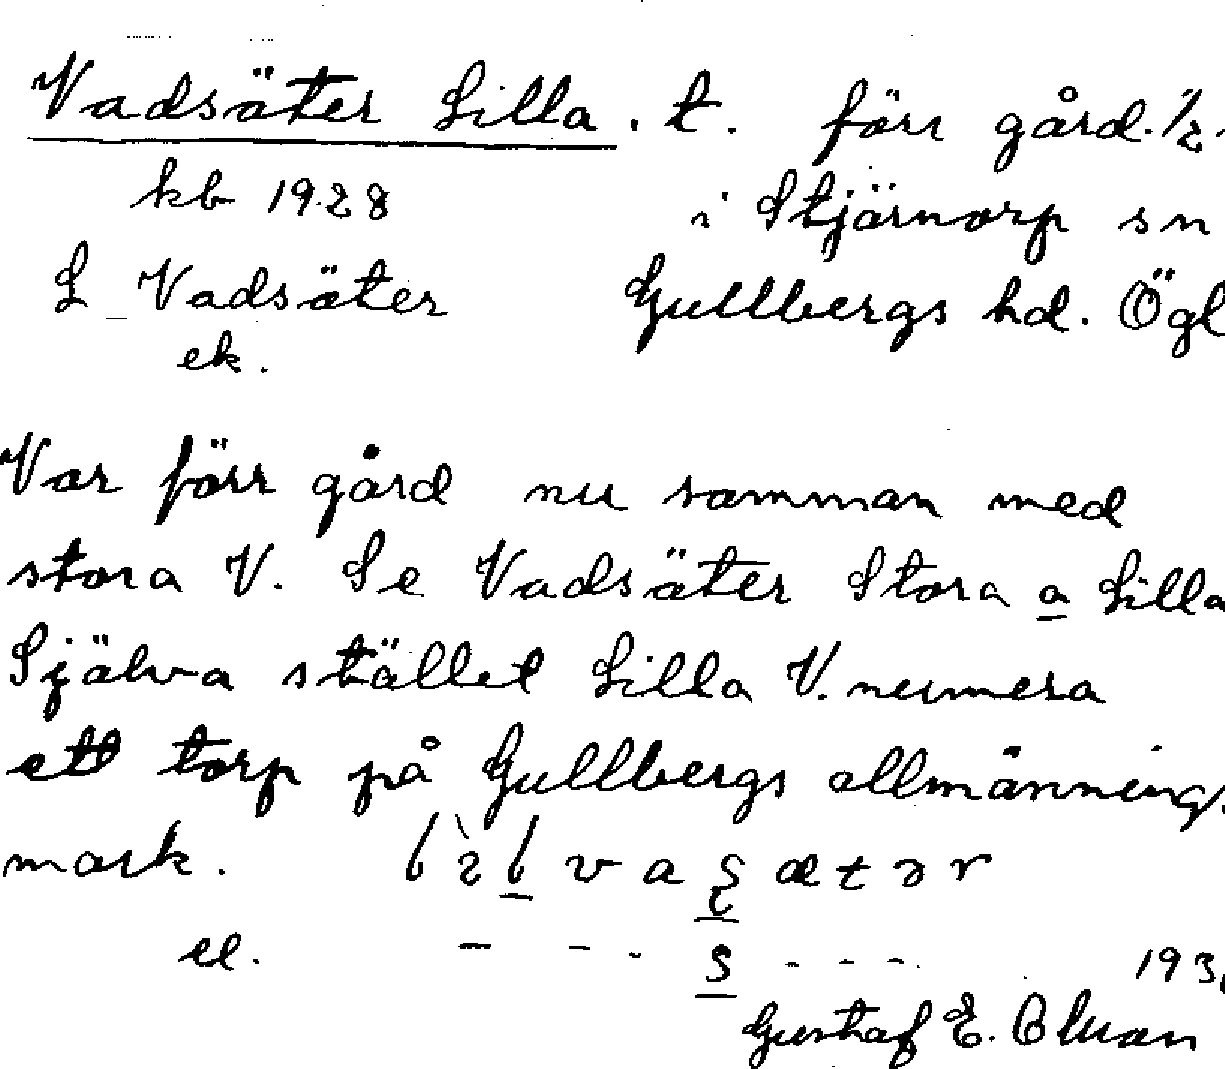 Vadsäter Lilla. t. förr gård. 1/2.
kb 1928 i Stjärnorp sn
L Vadsäter Gullbergs hd. Ögl
ek.
Var förr gård nu samman med
stora V. Se Vadsäter Stora a Lilla
Själva stället Lilla V. numera
ett torp på Gullbergs allmänning
mark.
el.
193
Gustaf E.